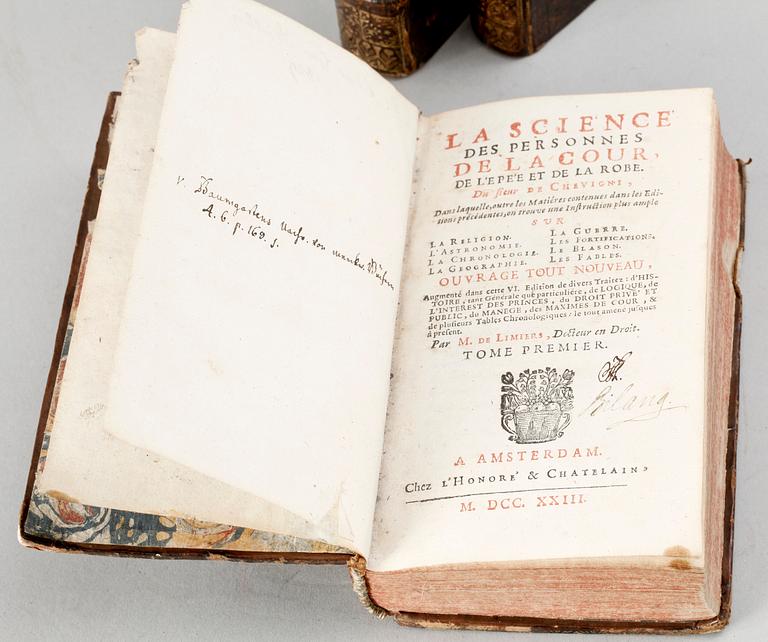 v. Baumgartens Nachr. von merkw. Büchern
A. 6. p. 169. s.
LA SCIENCE
DES PERSONNES
DE LA COUR,
DE L'EPE'E ET DE LA ROBE.
Du sieur DE CHEVIGNI,
Dans laquelle, outre les Matiéres contenues dans les Edi-
tions précédentes, on trouve une Instruction plus ample
SUR
LA RELIGION.
L'ASTRONOMIE.
LA CHRONOLOGIE.
LA GEOGRAPHIE.
LA GUERRE.
LES FORTIFICATIONS.
LE BLASON.
LES FABLES.
OUVRAGE TOUT NOUVEAU,
Augmenté dans cette VI. Edition de divers Traitez: d'HIS-
TOIRE, tant Générale que particuliére, de LOGIQUE, de
L'INTEREST DES PRINCES, du DROIT PRIVE' ET
PUBLIC, du MANEGE, des MAXIMES DE COUR, &
de plusieurs Tables Chronologiques: le tout amené jusques
à présent.
Par M. DE LIMIERS, Docteur en Droit.
TOME PREMIER.
Bilang.
A AMSTERDAM.
Chez L'HONORE' & CHATELAIN,
M. DCC. XXIII.